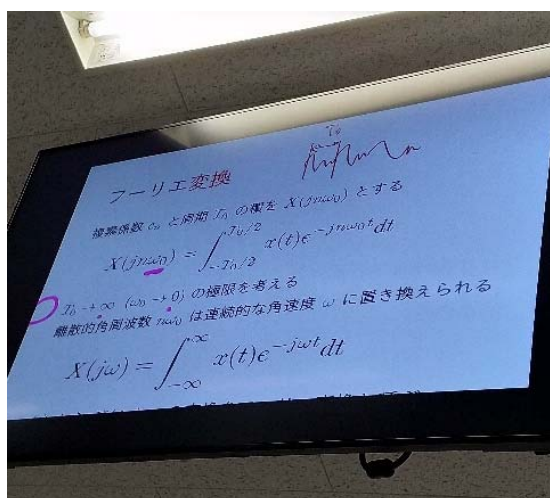 T₀
フーリエ変換
複素係数 cₙ と周期 T₀ の積を X(jnω₀) とする
X(jnω₀) = ∫_{-T₀/2}^{T₀/2} x(t)e^{-jnω₀t}dt
T₀→+∞ (ω₀→+0) の極限を考える
離散的角周波数 nω₀ は連続的な角速度 ω に置き換えられる
X(jω) = ∫_{-∞}^{∞} x(t)e^{-jωt}dt